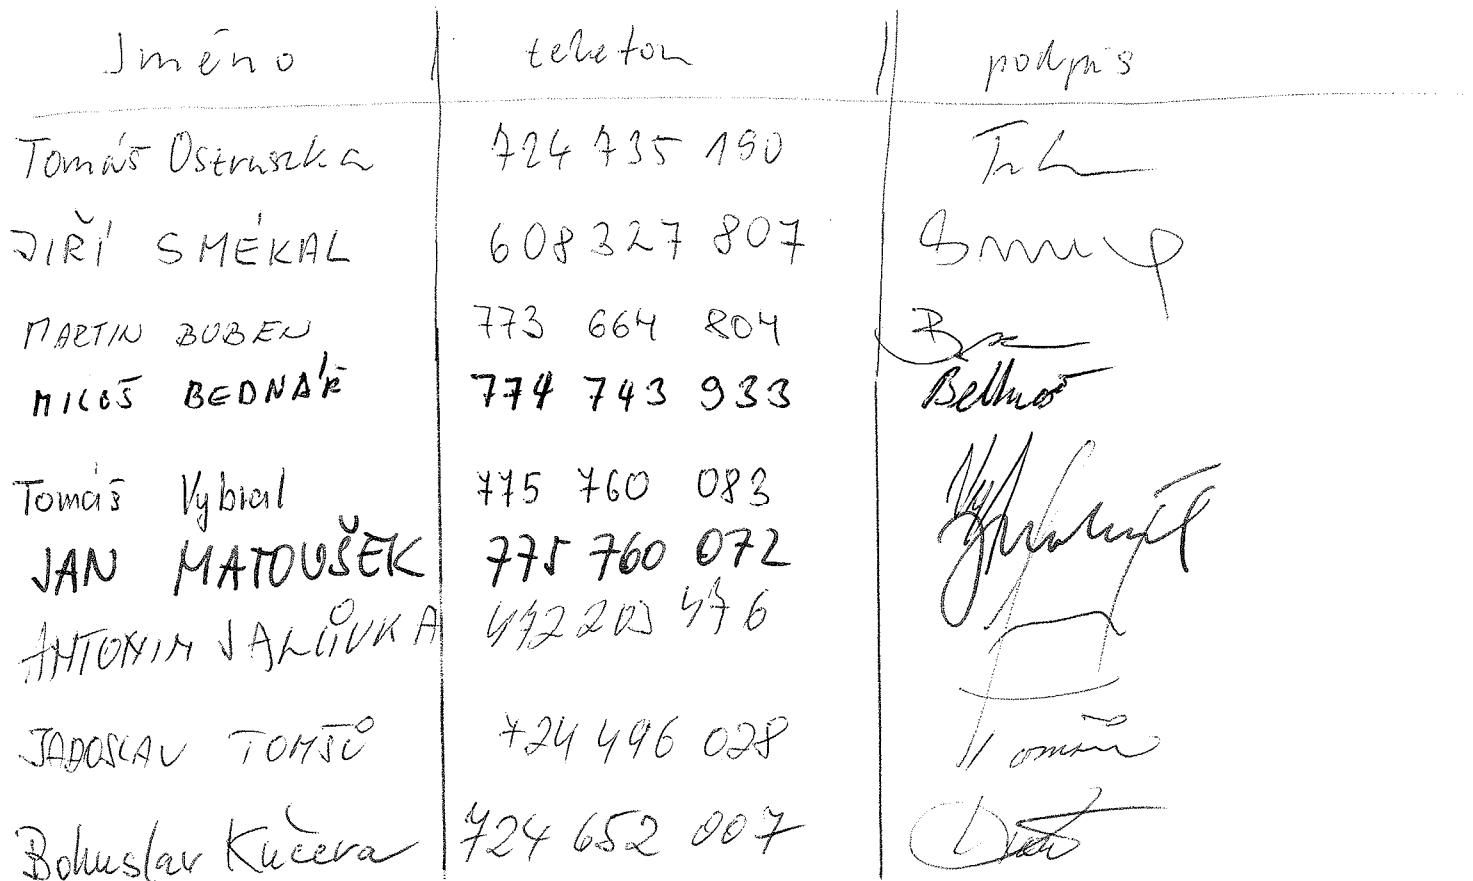 Jméno telefon podpis
Tomáš Ostruszka 724 735 190
JIŘÍ SMÉKAL 608 327 807
MARTIN BUBEN 773 664 804
MILOŠ BEDNÁŘ 774 743 933
Tomáš Vybíral 775 760 083
JAN MATOUŠEK 775 760 072
ANTONIN JALŮVKA
JAROSLAV TOMŠŮ 724 496 028
Bohuslav Kučera 724 652 007